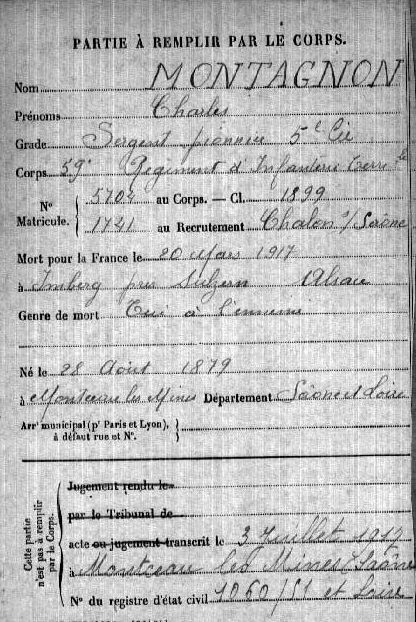 PARTIE À REMPLIR PAR LE CORPS.
Nom MONTAGNON
Prénoms Charles
Grade Sergent pionnier 5e Cie
Corps 59e Régiment d'Infanterie Terr le
N° Matricule. { 5704 au Corps. — Cl. 1899
1741 au Recrutement Chalon s/Saône
Mort pour la France le 20 Mars 1917
à Imberg près Sulzern Alsace
Genre de mort Tué à l'ennemi
Né le 28 Août 1879
à Montceau les Mines Département Saône et Loire
Arr¹ municipal (p¹ Paris et Lyon),
à défaut rue et N°.
Cette partie
n'est pas à remplir
par le Corps.
Jugement rendu le
par le Tribunal de
acte ou jugement transcrit le 3 Juillet 1919
à Montceau les Mines (Saône
N° du registre d'état civil 1060/51 et Loire